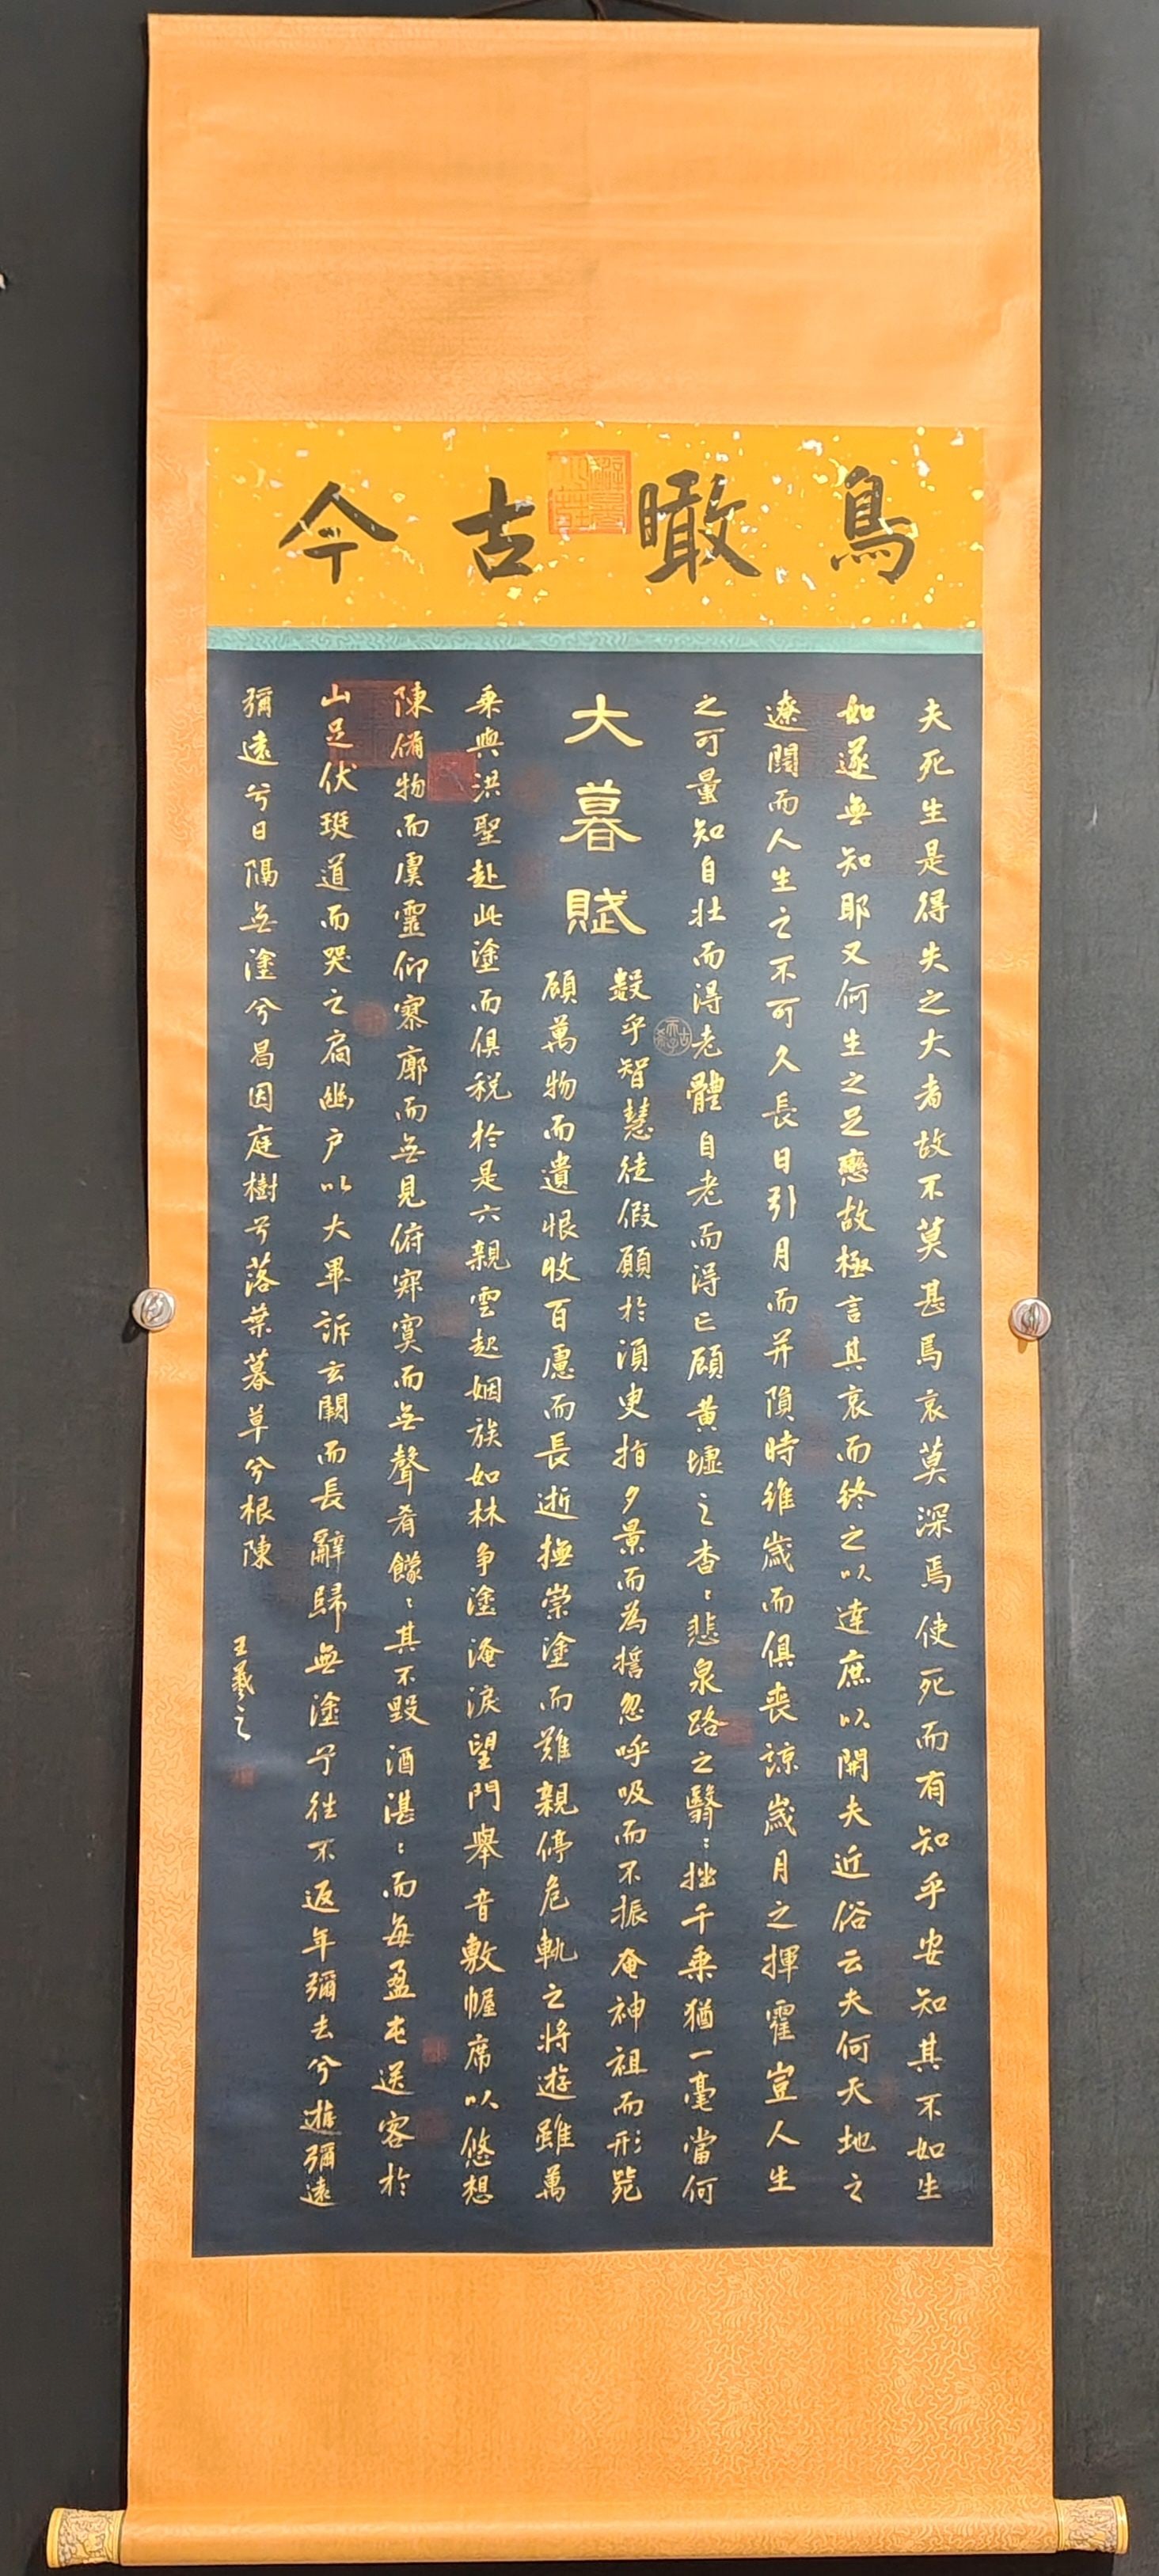 鳥瞰古今
夫死生是得失之大者故不莫甚焉哀莫深焉使死而有知乎安知其不如生
如遂無知耶又何生之足戀故極言其哀而終之以達庶以開夫近俗云夫何天地之
遼闊而人生之不可久長日引月而并隕時維歲而俱喪諒歲月之揮霍豈人生
之可量知自壯而得老體自老而得亡顧黃墟之杳〻悲泉路之翳〻挫千乘猶一毫當何
數乎智慧徒假願於須臾指夕景而為誓忽呼吸而不振奄神徂而形斃
大暮賦
顧萬物而遺恨收百慮而長逝撫崇塗而難親停危軌之將遊雖萬
乘與洪聖赴此塗而俱稅於是六親雲起姻族如林争塗淹淚望門舉音敷幄席以悠想
陳備物而虞靈仰寥廓而無見俯寂寞而無聲肴饛〻其不毀酒湛〻而每盈屯送客於
山足伏埏道而哭之扃幽户以大畢訴玄闕而長辭歸無塗兮往不返年彌去兮逝彌遠
彌遠兮日隔無塗兮曷因庭樹兮落葉暮草兮根陳
王羲之